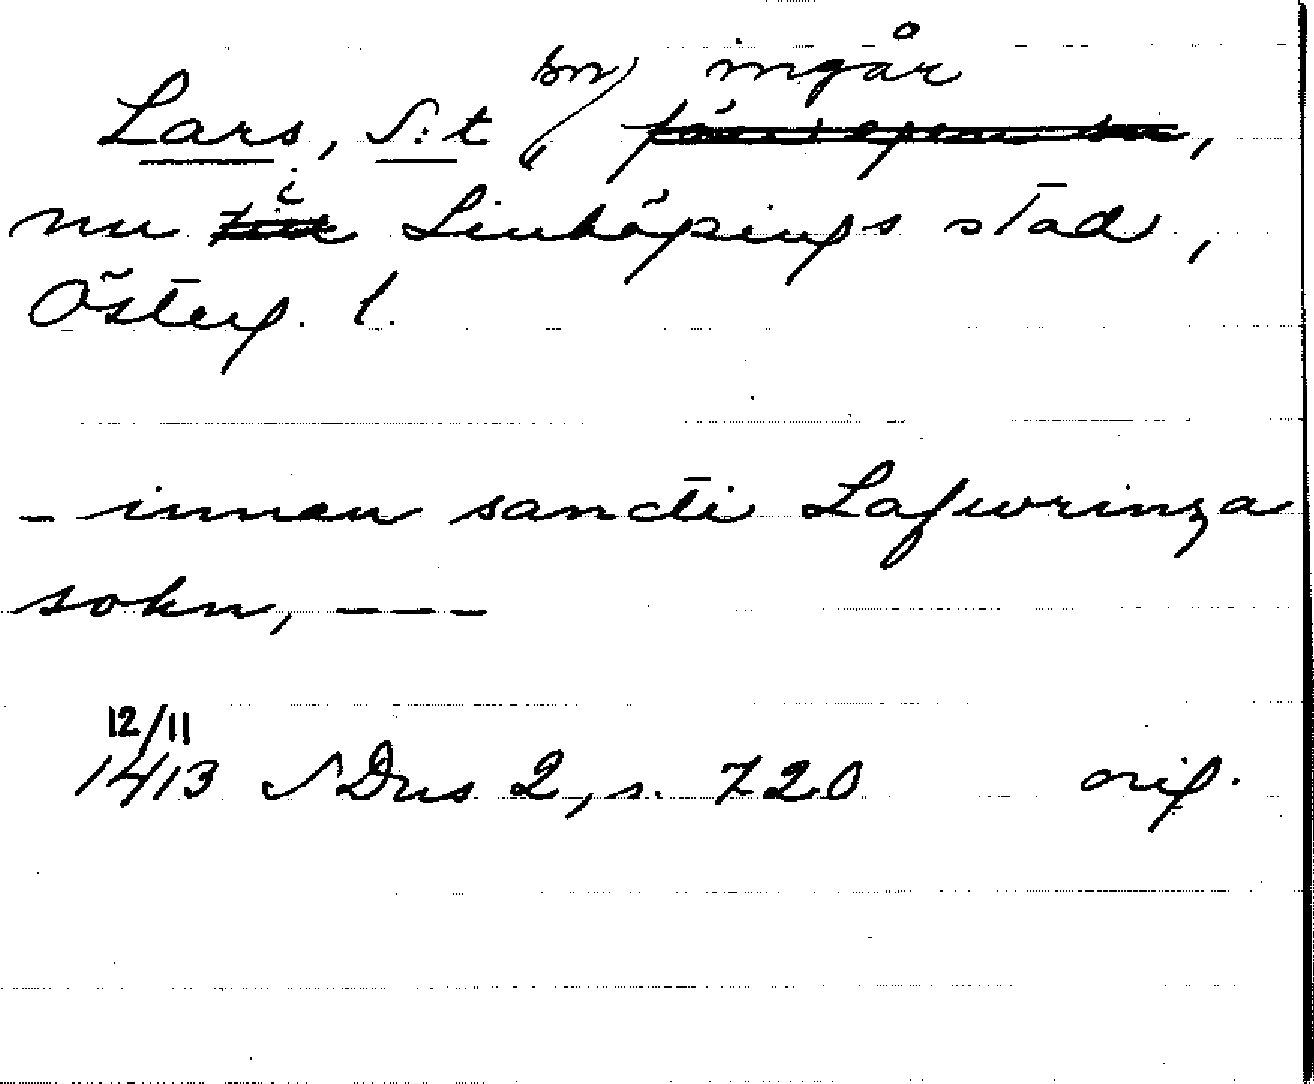 sn ingår
Lars, S:t
nu i Linköpings stad,
Österg. l.
- innan sancti Lafwrinza
sokn, ---
12/11
1413 SDns 2, s. 720 orig.